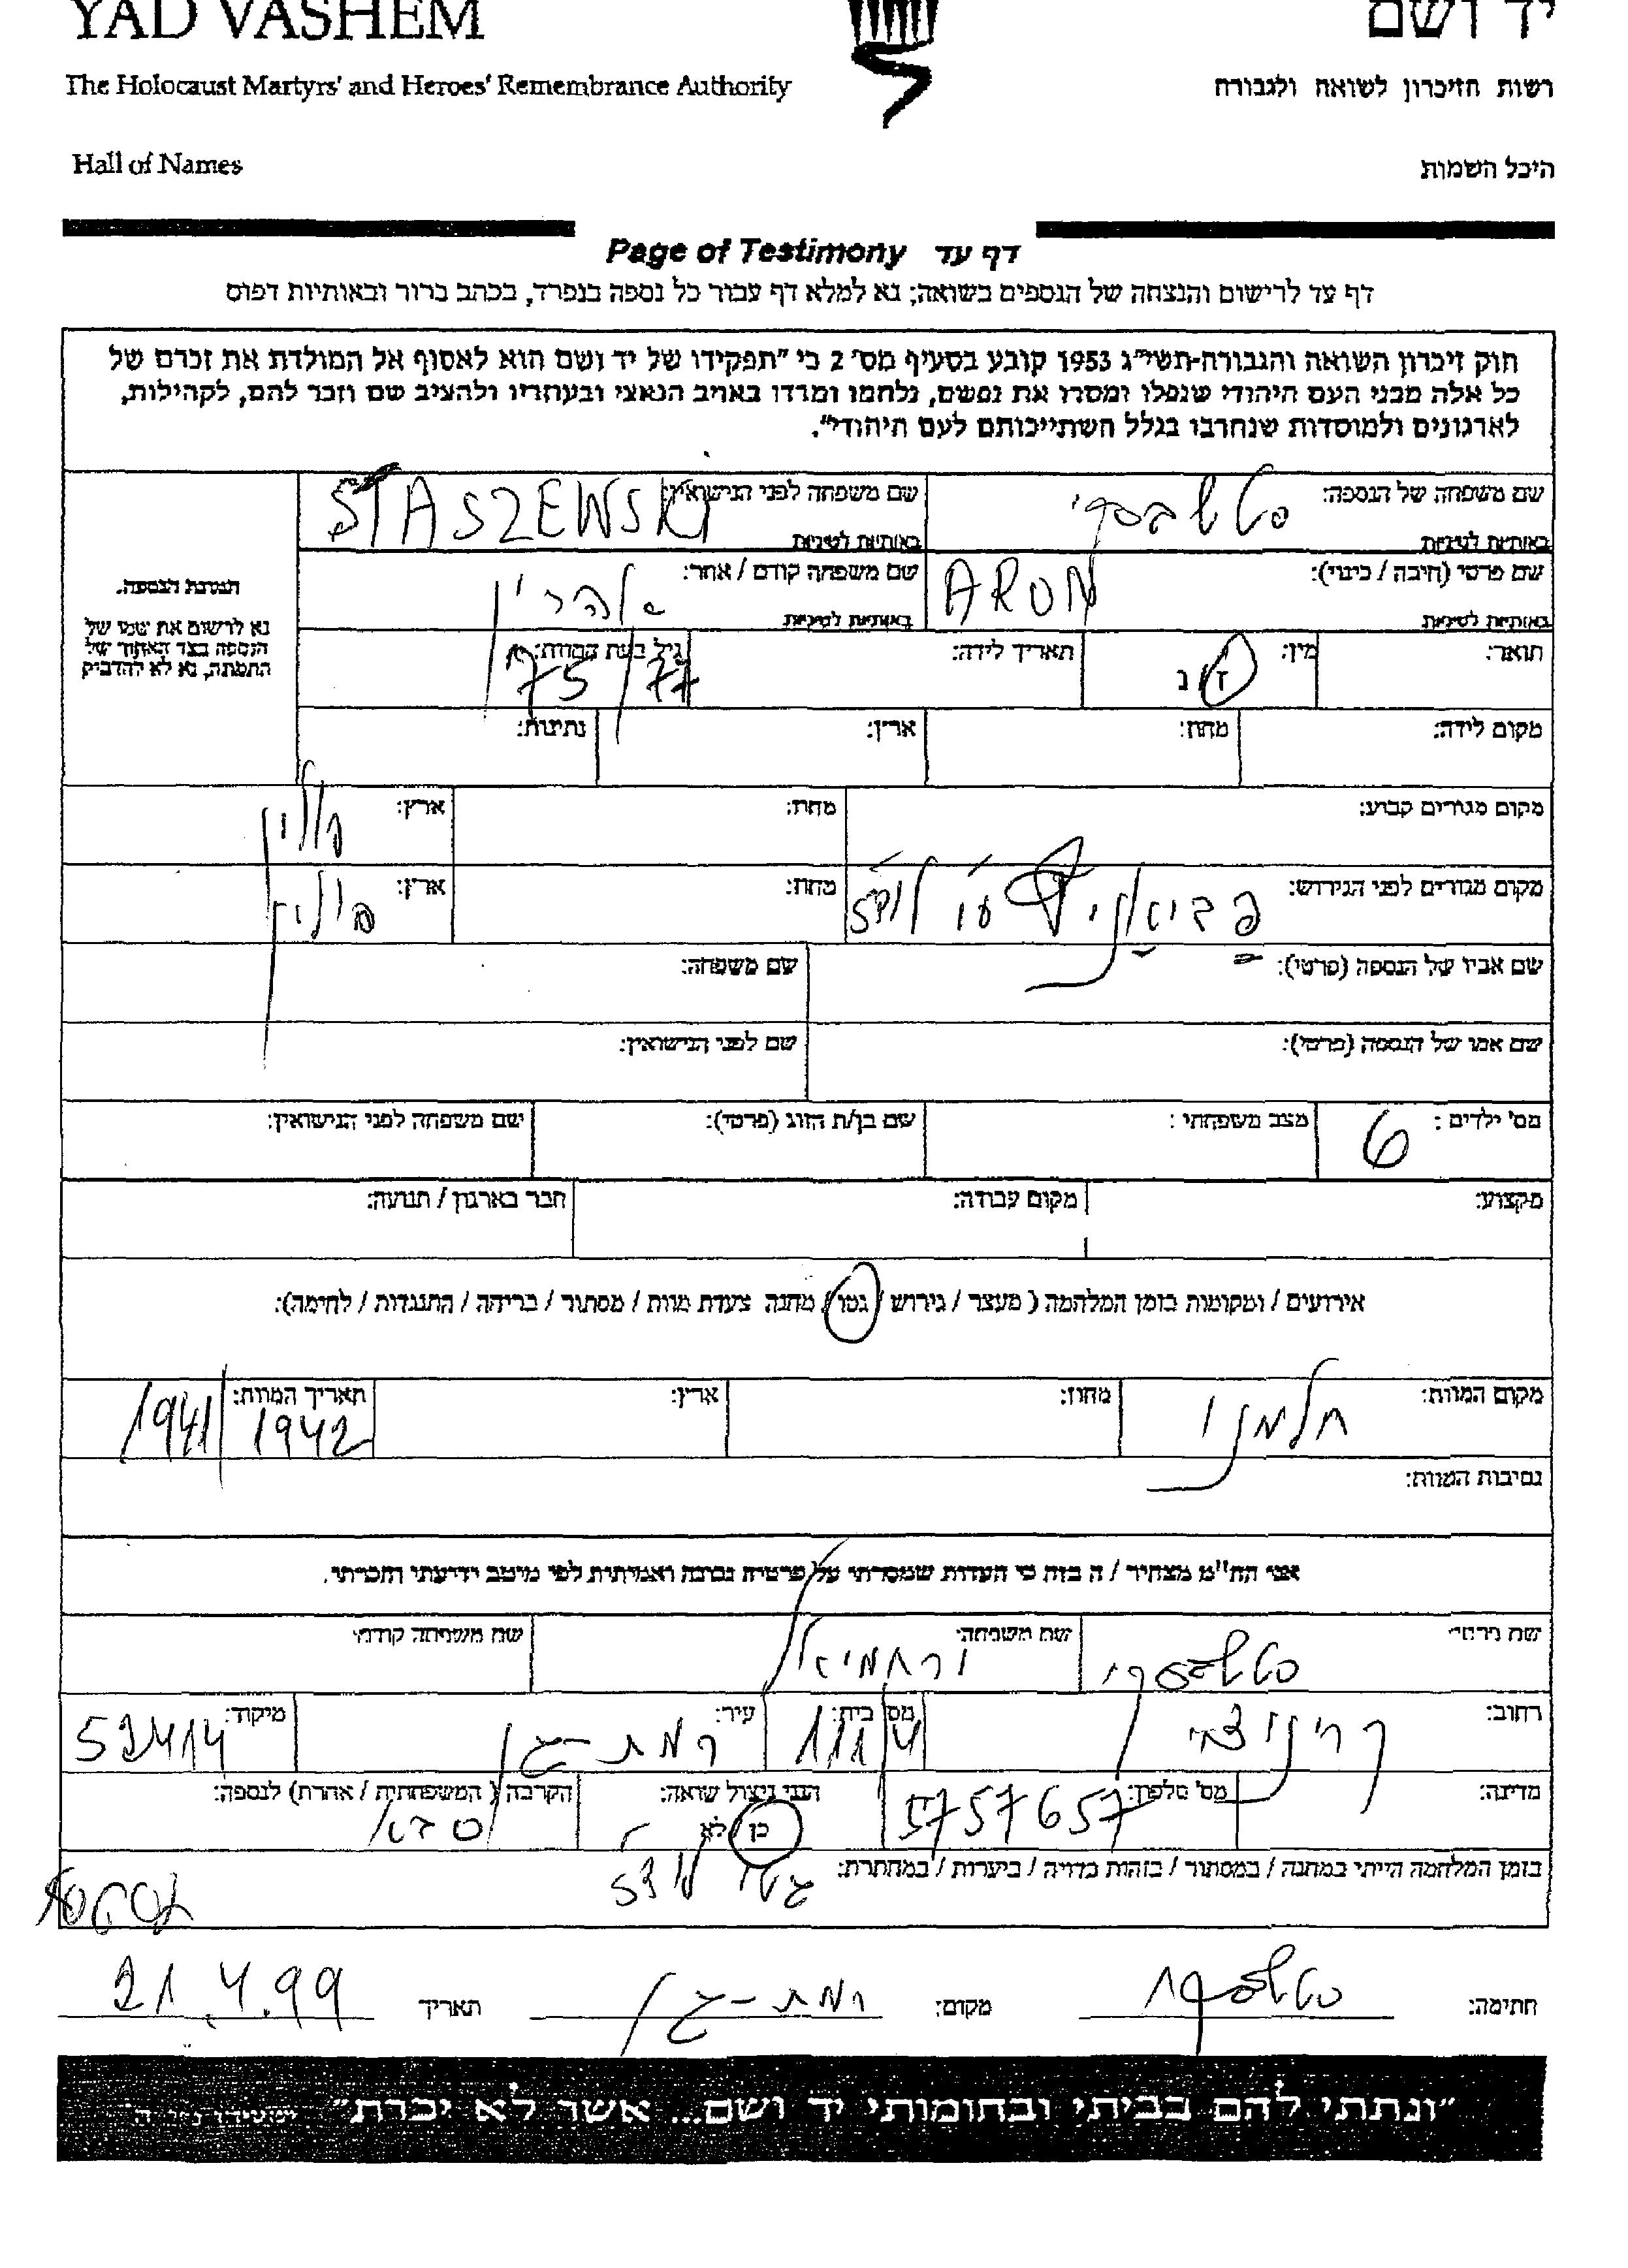 YAD VASHEM יד ושם
The Holocaust Martyrs' and Heroes' Remembrance Authority רשות הזיכרון לשואה ולגבורה
Hall of Names היכל השמות
Page of Testimony דף עד
דף עד לרישום והנצחה של הנספים בשואה; נא למלא דף עבור כל נספה בנפרד, בכתב ברור ובאותיות דפוס
חוק זיכרון השואה והגבורה-תשי"ג 1953 קובע בסעיף מס' 2 כי "תפקידו של יד ושם הוא לאסוף אל המולדת את זכרם של
כל אלה מבני העם היהודי שנפלו ומסרו את נפשם, נלחמו ומרדו באויב הנאצי ובעוזריו ולהציב שם וזכר להם, לקהילות,
לארגונים ולמוסדות שנחרבו בגלל השתייכותם לעם היהודי".
שם משפחה של הנספה: סטשבסקי שם משפחה לפני הנישואין: STASZEWSKI
באותיות לטיניות באותיות לטיניות
תמונת הנספה.
נא לרשום את שמו של
הנספה בצד האחור של
התמונה, נא לא להדביק
שם פרטי (חיבה / כינוי): ARON שם משפחה קודם / אחר: אהרון
באותיות לטיניות באותיות לטיניות
תואר: מין: ז / נ תאריך לידה: גיל בעת המוות: 75/77
מקום לידה: מחוז: ארץ: נתינות:
מקום מגורים קבוע: מחוז: ארץ: פולין
מקום מגורים לפני הגירוש: לודז' מחוז: ארץ: פולין
שם אביו של הנספה (פרטי): שם משפחה:
שם אמו של הנספה (פרטי): שם לפני הנישואין:
מס' ילדים: 6 מצב משפחתי: שם בן/ת הזוג (פרטי): שם משפחה לפני הנישואין:
מקצוע: מקום עבודה: חבר בארגון / תנועה:
אירועים / ומקומות בזמן המלחמה ( מעצר / גירוש / גטו / מחנה צעדת מוות / מסתור / בריחה / התנגדות / לחימה):
מקום המוות: חלמנו מחוז: ארץ: תאריך המוות: 1941/1942
נסיבות המוות:
אני הח"מ מצהיר / ה בזה כי העדות שמסרתי על פרטיה נכונה ואמיתית לפי מיטב ידיעתי והכרתי.
שם פרטי: סטשבסקי שם משפחה: ירחמיאל שם משפחה קודם:
רחוב: מס' בית: 111/4 עיר: רמת-גן מיקוד: 52414
מדינה: מס' טלפון: 5757657 הנני ניצול שואה: כן / לא הקרבה ( המשפחתית / אחרת) לנספה: סבא
בזמן המלחמה הייתי במחנה / במסתור / בזהות בדויה / ביערות / במחתרת: גטו לודז'
חתימה: סטשבסקי מקום: רמת-גן תאריך 21.4.99
"ונתתי להם בביתי ובחומותי יד ושם... אשר לא יכרת"